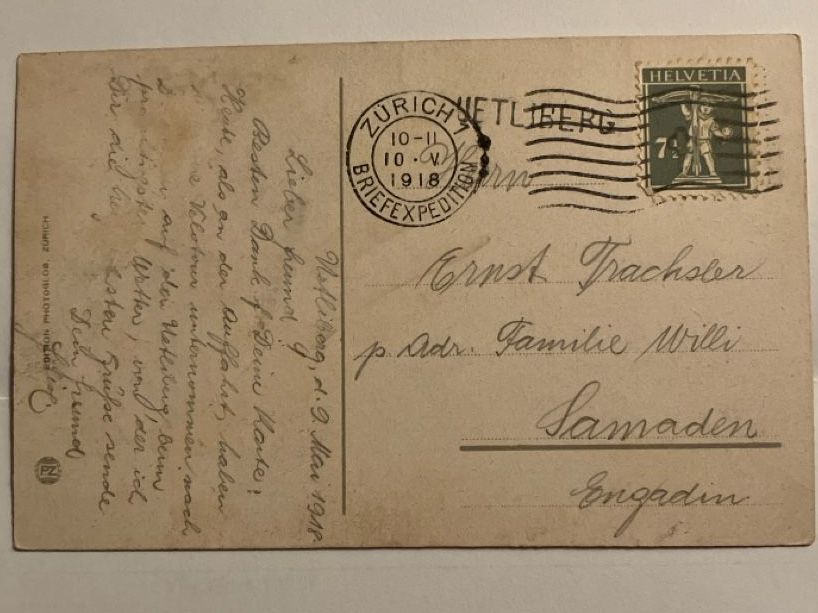 Uetliberg, d. 9. Mai 1918.
Lieber Freund!
Besten Dank f. Deine Karte!
Heute, als an der Auffahrt, haben
Velotour unternommen nach
auf den Uetliberg, beim
prächtigsten Wetter, von der ich
Dir die besten Grüße sende
Dein Freund
EDITION PHOTOGLOB ZÜRICH
PZ
ZÜRICH 1
10-11
10.V.
1918
BRIEFEXPEDITION
UETLIBERG
HELVETIA
7½
Herrn
Ernst Trachsler
p. Adr. Familie Willi
Samaden
Engadin